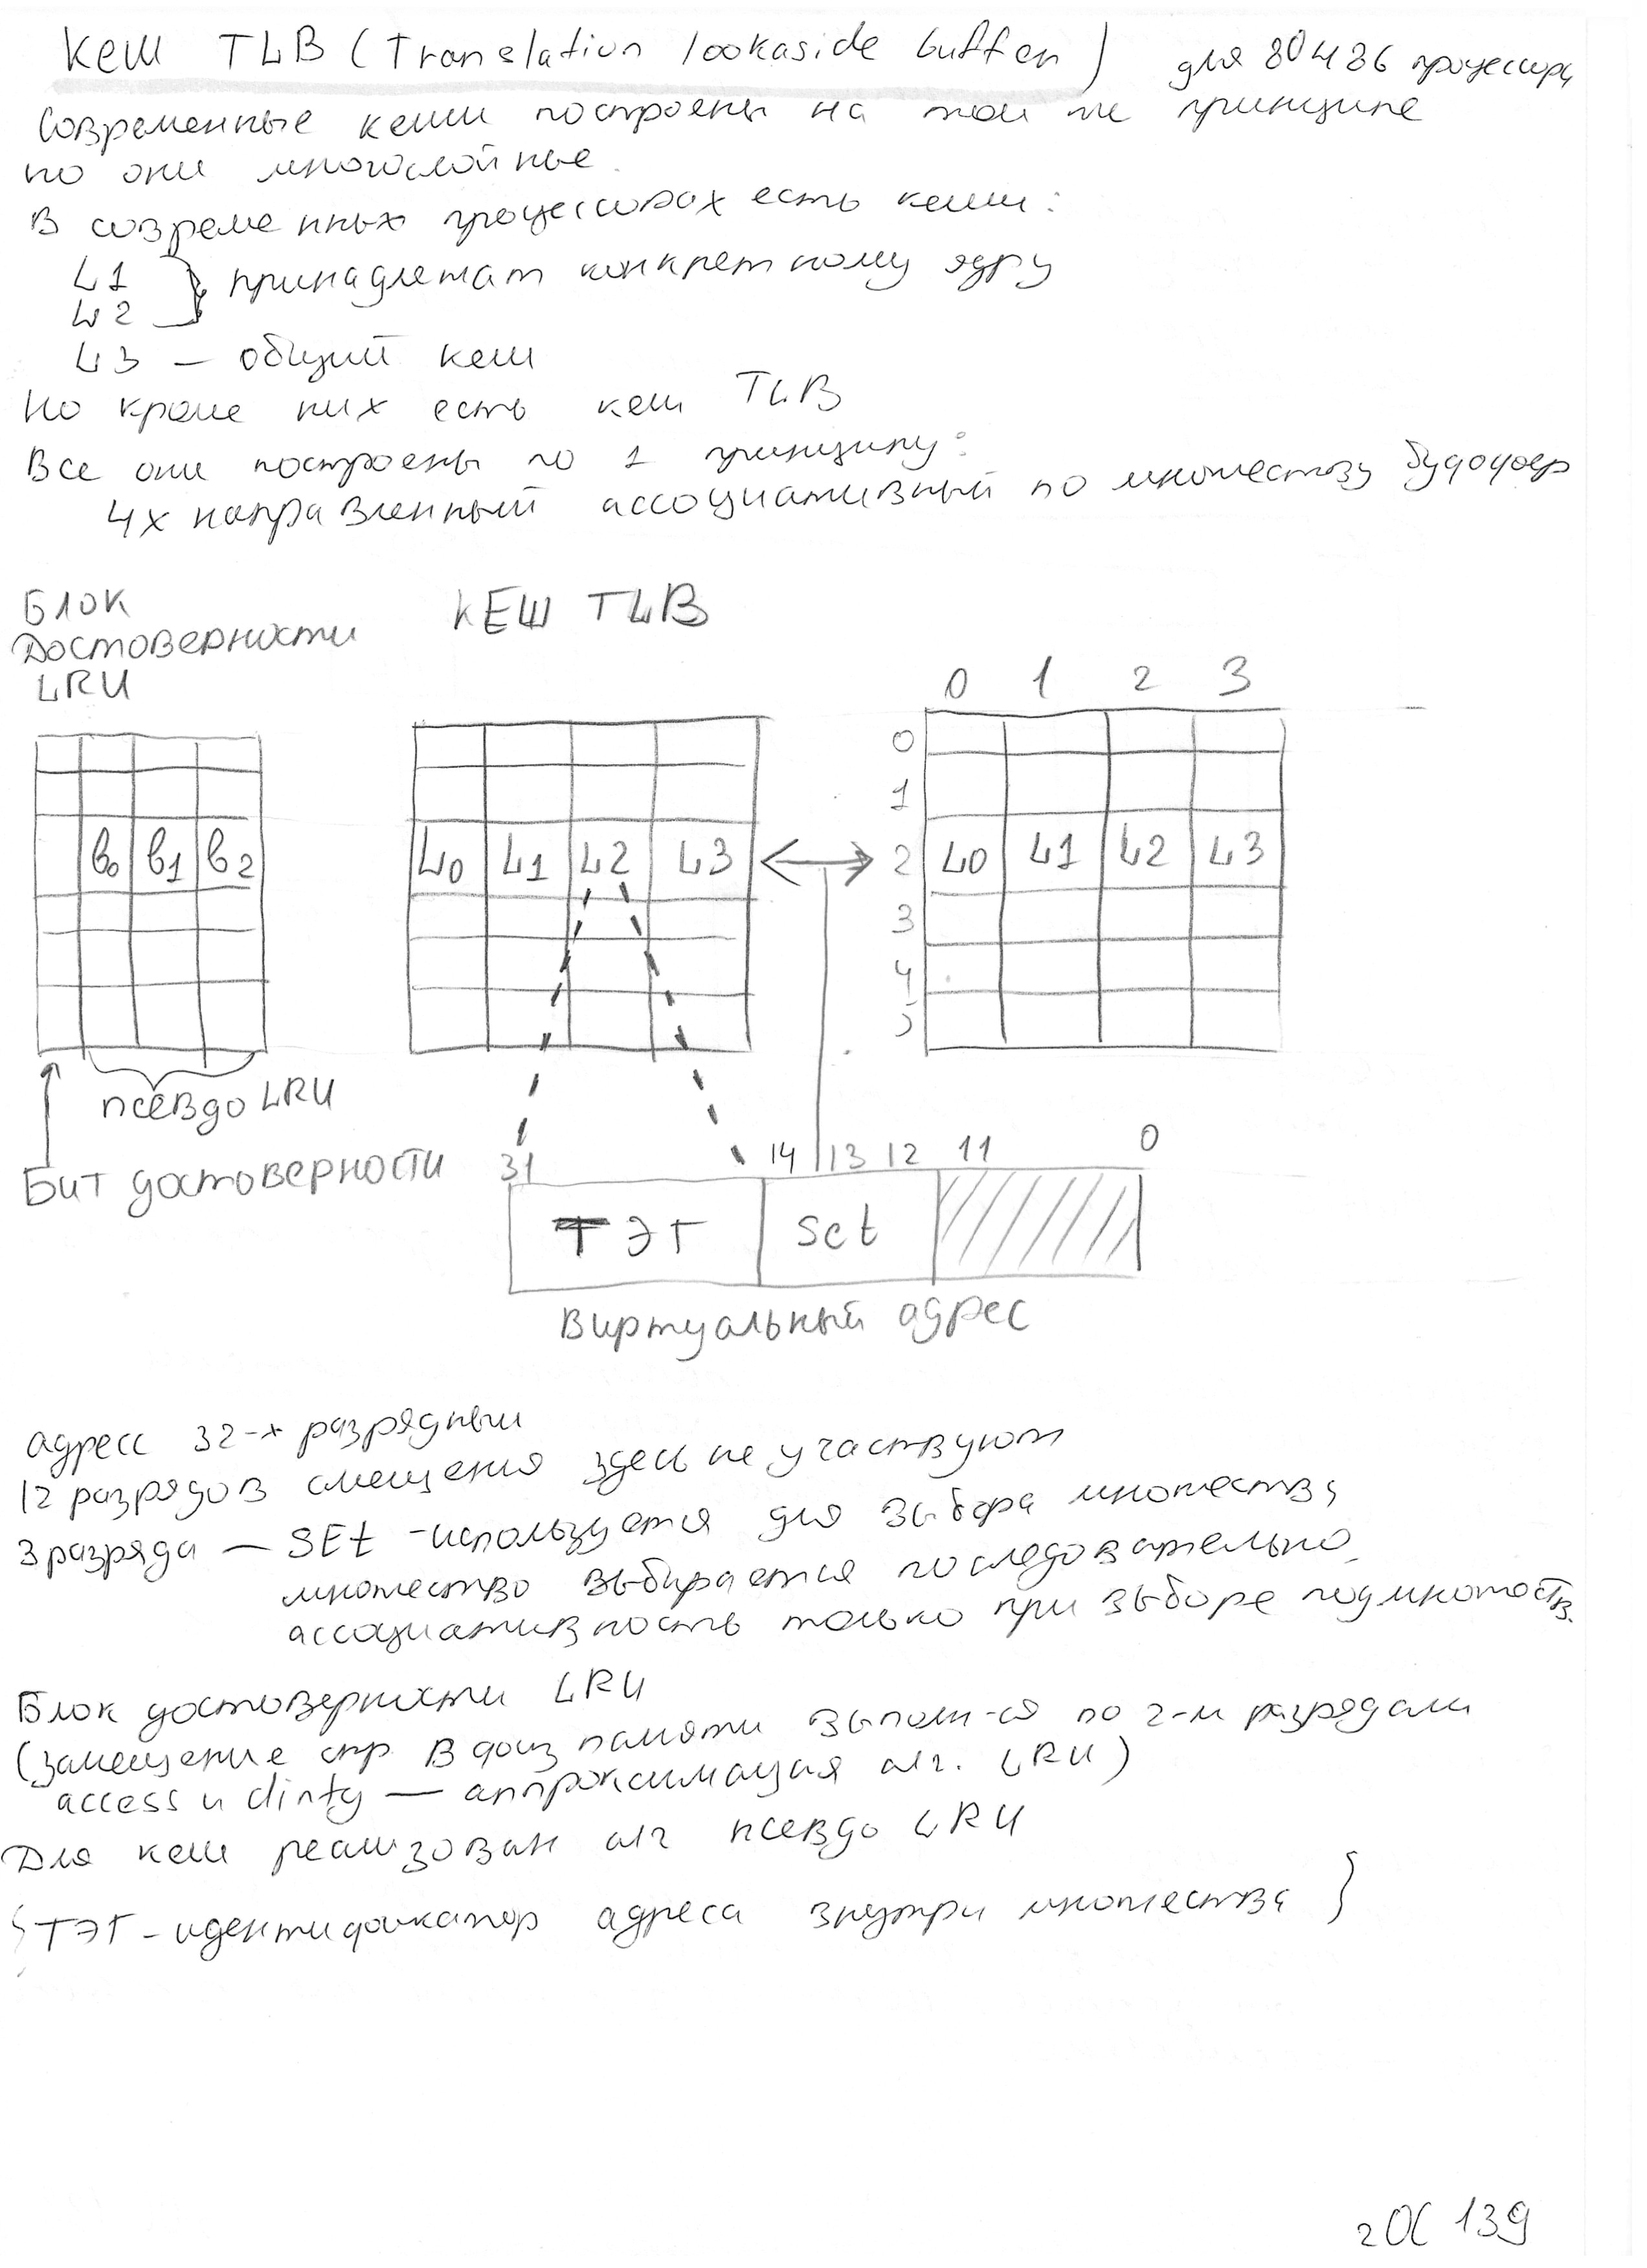 Кеш TLB (Translation lookaside buffer) для 80486 процессора
Современные кеши построены на том же принципе
но они многослойные.
В современных процессорах есть кеши:
L1
L2
принадлежат конкретному ядру
L3 — общий кеш
Но кроме них есть кеш TLB
Все они построены по 1 принципу:
4х направленный ассоциативный по множеству буфер
БЛОК
Достоверности
LRU
КЕШ TLB
0 1 2 3
0
1
b0 b1 b2
L0 L1 L2 L3
2 L0 L1 L2 L3
3
4
5
псевдо LRU
Бит достоверности
31 14 13 12 11 0
ТЭГ Set
Виртуальный адрес
адресс 32-х разрядный
12 разрядов смещения здесь не участвуют
3 разряда — SEt - используется для выбора множества
множество выбирается последовательно,
ассоциативность только при выборе подмножеств.
Блок достоверности LRU
(замещение стр в физ памяти выполн-ся по 2-м разрядам
access и dirty — аппроксимация алг. LRU)
Для кеш реализован алг псевдо LRU
{ТЭГ - идентификатор адреса внутри множества}
2ОС 139